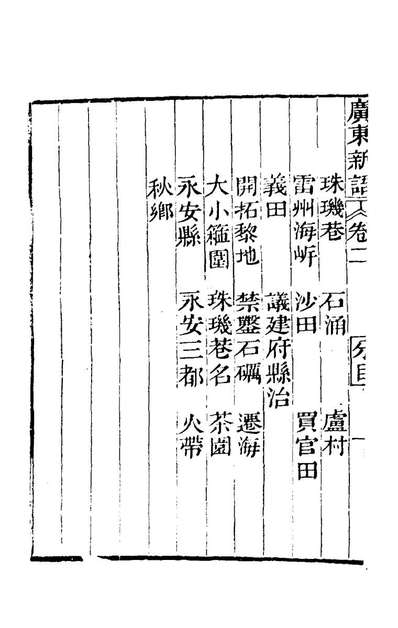 廣東新語 卷二 分目 一
珠璣巷 石涌 盧村
雷州海㟁 沙田 買官田
義田 議建府縣治
開拓黎地 禁鑿石礪 遷海
大小箍圍 珠璣巷名 茶園
永安縣 永安三都 火帶
秋鄉